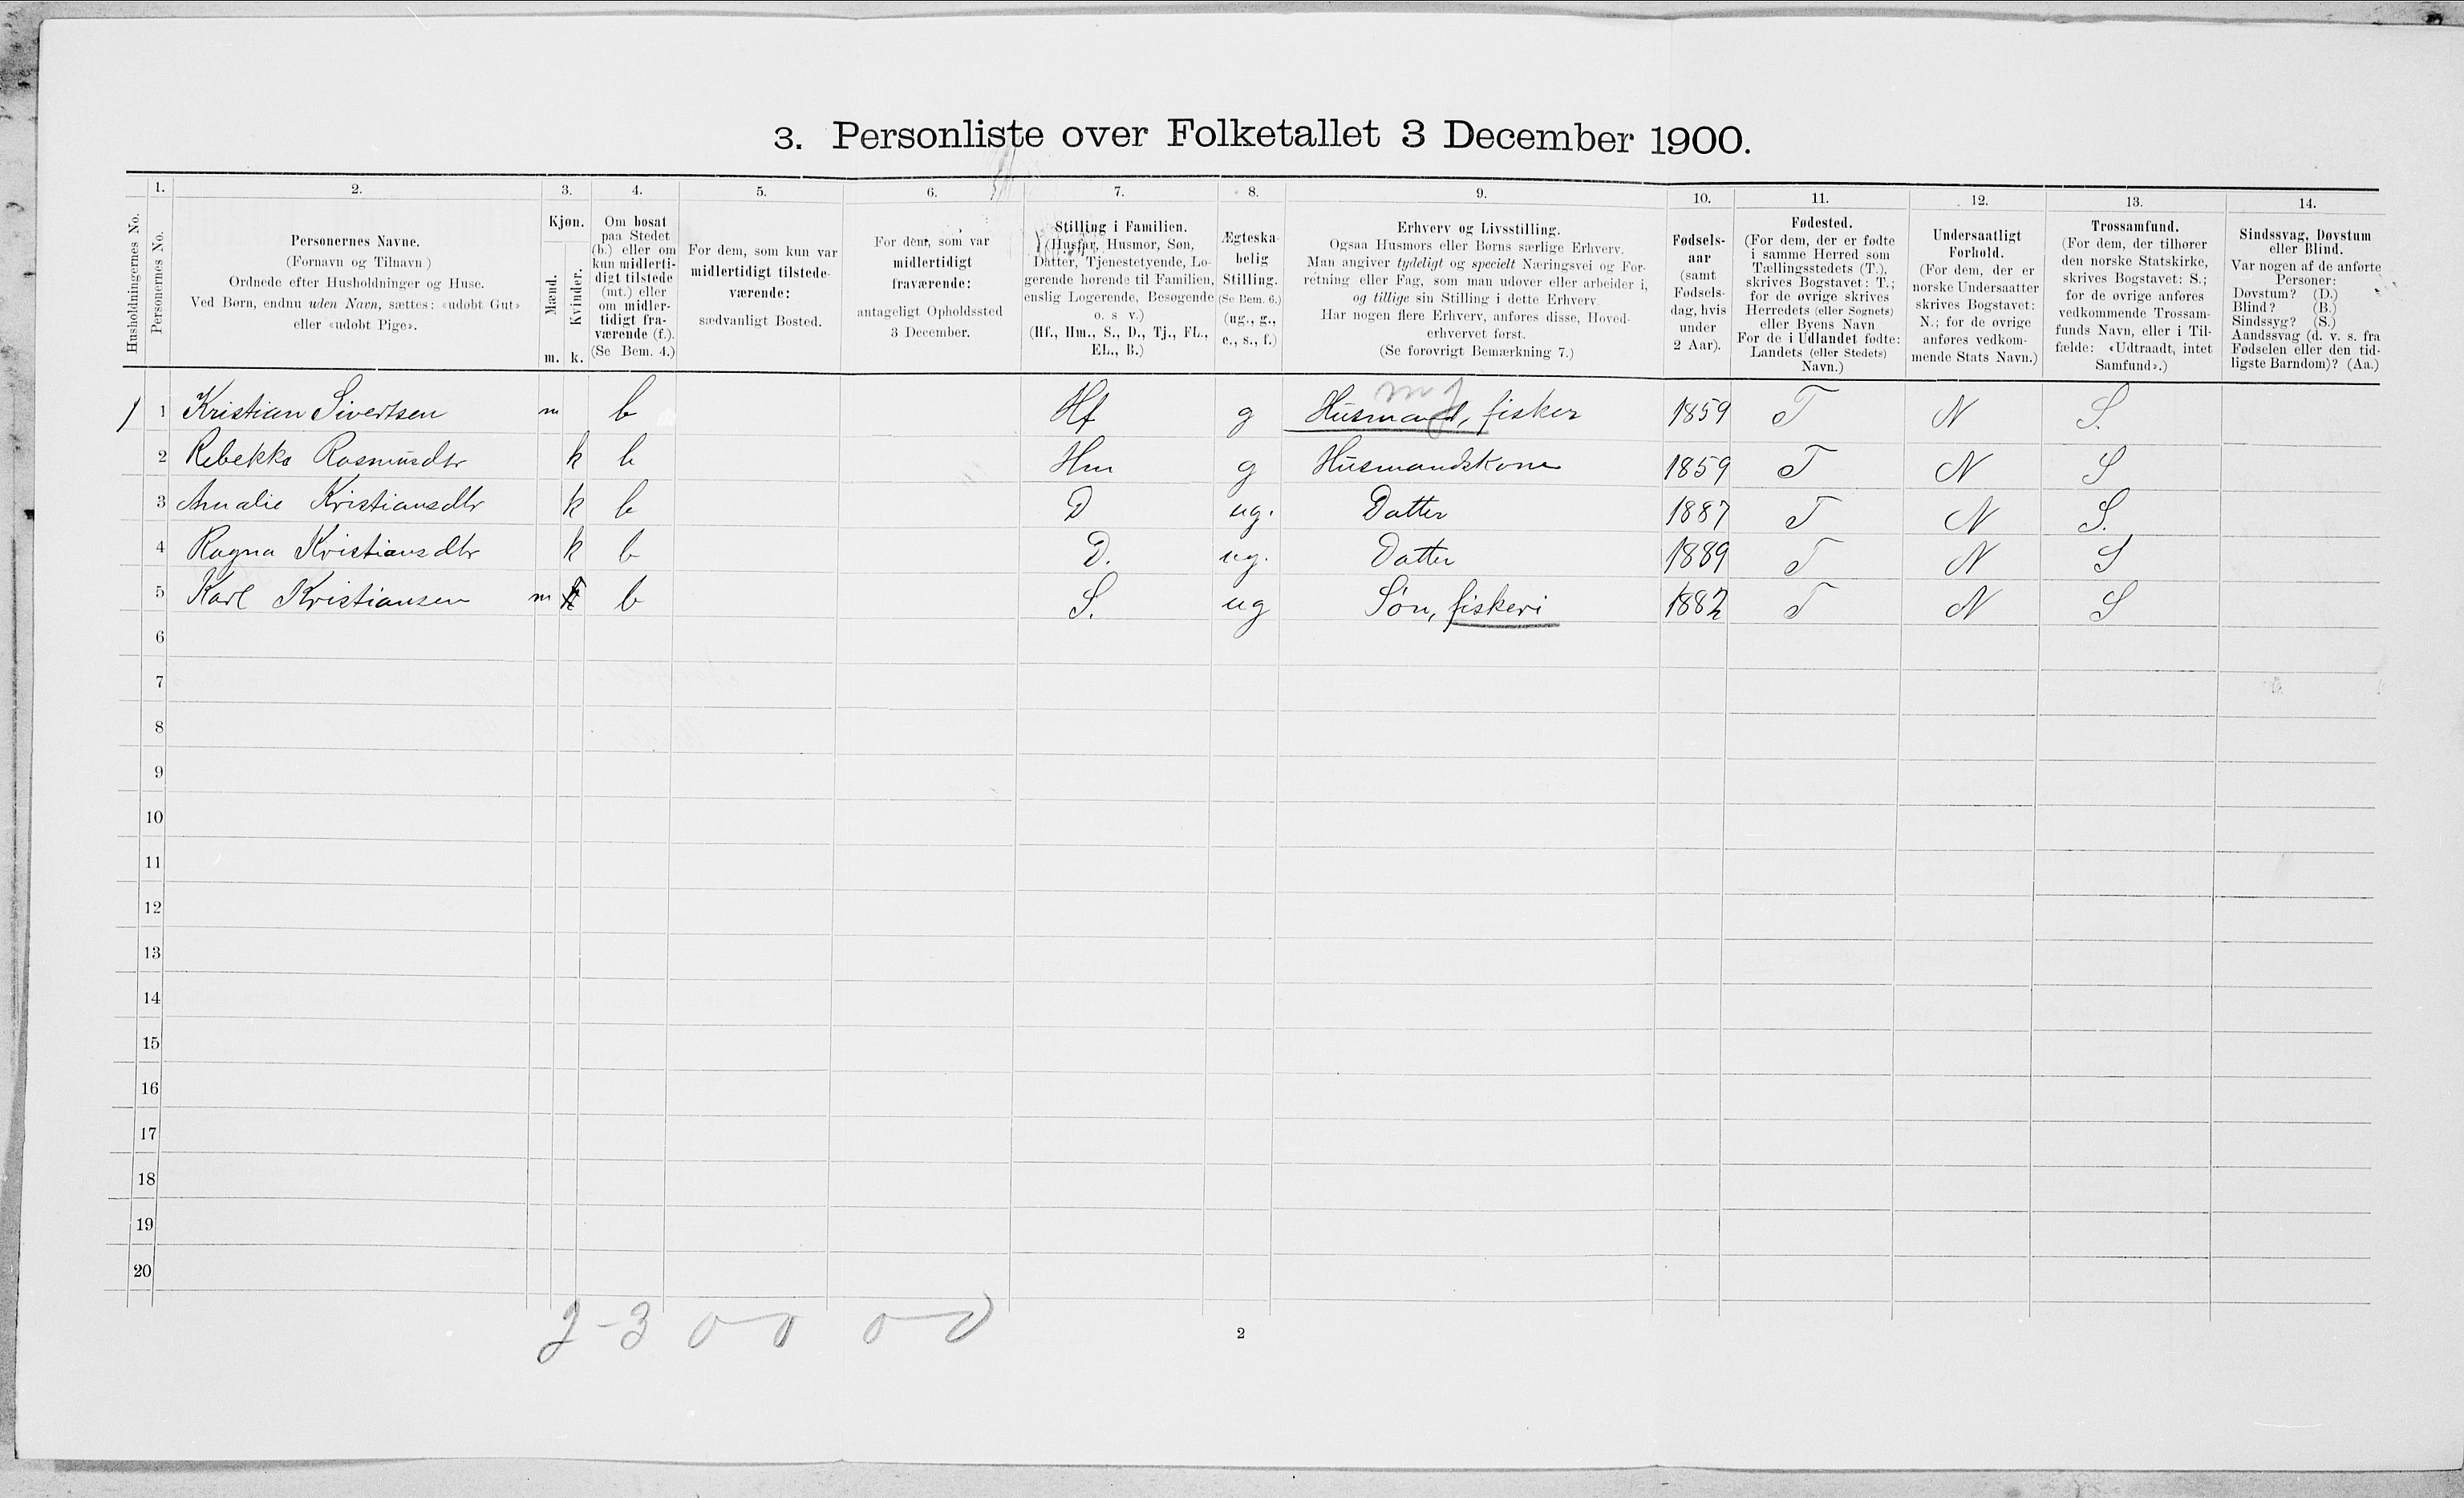 3. Personliste over Folketallet 3 December 1900.
1. 2. 3. 4. 5. 6. 7. 8. 9. 10. 11. 12. 13. 14.
Husholdningernes No.
Personernes No.
Personernes Navne.
(Fornavn og Tilnavn)
Ordnede efter Husholdninger og Huse.
Ved Børn, endnu uden Navn, sættes: «udøbt Gut»
eller «udøbt Pige».
Kjøn.
Mænd.
Kvinder.
m. k.
Om bosat
paa Stedet
(b.) eller om
kun midlerti-
digt tilstede
(mt.) eller
om midler-
tidigt fra-
værende (f.).
(Se Bem. 4.)
For dem, som kun var
midlertidigt tilstede-
værende:
sædvanligt Bosted.
For dem, som var
midlertidigt
fraværende:
antageligt Opholdssted
3 December.
Stilling i Familien.
(Husfar, Husmor, Søn,
Datter, Tjenestetyende, Lo-
gerende hørende til Familien,
enslig Logerende, Besøgende
o. s v.)
(Hf., Hm., S., D., Tj., FL.,
EL., B.)
Ægteska-
belig
Stilling.
(Se Bem. 6.)
(ug., g.,
e., s., f.)
Erhverv og Livsstilling.
Ogsaa Husmors eller Børns særlige Erhverv.
Man angiver tydeligt og specielt Næringsvei og For-
retning eller Fag, som man udøver eller arbeider i,
og tillige sin Stilling i dette Erhverv.
Har nogen flere Erhverv, anføres disse, Hoved-
erhvervet først.
(Se forøvrigt Bemærkning 7.)
Fødsels-
aar
(samt
Fødsels-
dag, hvis
under
2 Aar).
Fødested.
(For dem, der er fødte
i samme Herred som
Tællingsstedets (T.),
skrives Bogstavet: T.;
for de øvrige skrives
Herredets (eller Sognets)
eller Byens Navn
For de i Udlandet fødte:
Landets (eller Stedets)
Navn.)
Undersaatligt
Forhold.
(For dem, der er
norske Undersaatter
skrives Bogstavet:
N.; for de øvrige
anføres vedkom-
mende Stats Navn.)
Trossamfund.
(For dem, der tilhører
den norske Statskirke,
skrives Bogstavet: S.;
for de øvrige anføres
vedkommende Trossam-
funds Navn, eller i Til-
fælde: «Udtraadt, intet
Samfund».)
Sindssvag, Døvstum
eller Blind.
Var nogen af de anførte
Personer:
Døvstum? (D.)
Blind? (B.)
Sindssyg? (S.)
Aandssvag (d. v. s. fra
Fødselen eller den tid-
ligste Barndom)? (Aa.)
1 1 Kristian Sivertsen m b Hf g Husmand, fisker 1859 T N S.
2 Rebekka Rasmusdtr k b Hm g Husmandskone 1859 T N S
3 Amalie Kristiansdtr k b D ug. Datter 1887 T N S.
4 Ragna Kristiansdtr k b D. ug. Datter 1889 T N S
5 Karl Kristiansen m k b S. ug Søn, fiskeri 1882 T N S
6
7
8
9
10
11
12
13
14
15
16
17
18
19
20
2-3 0 0 0 0
2